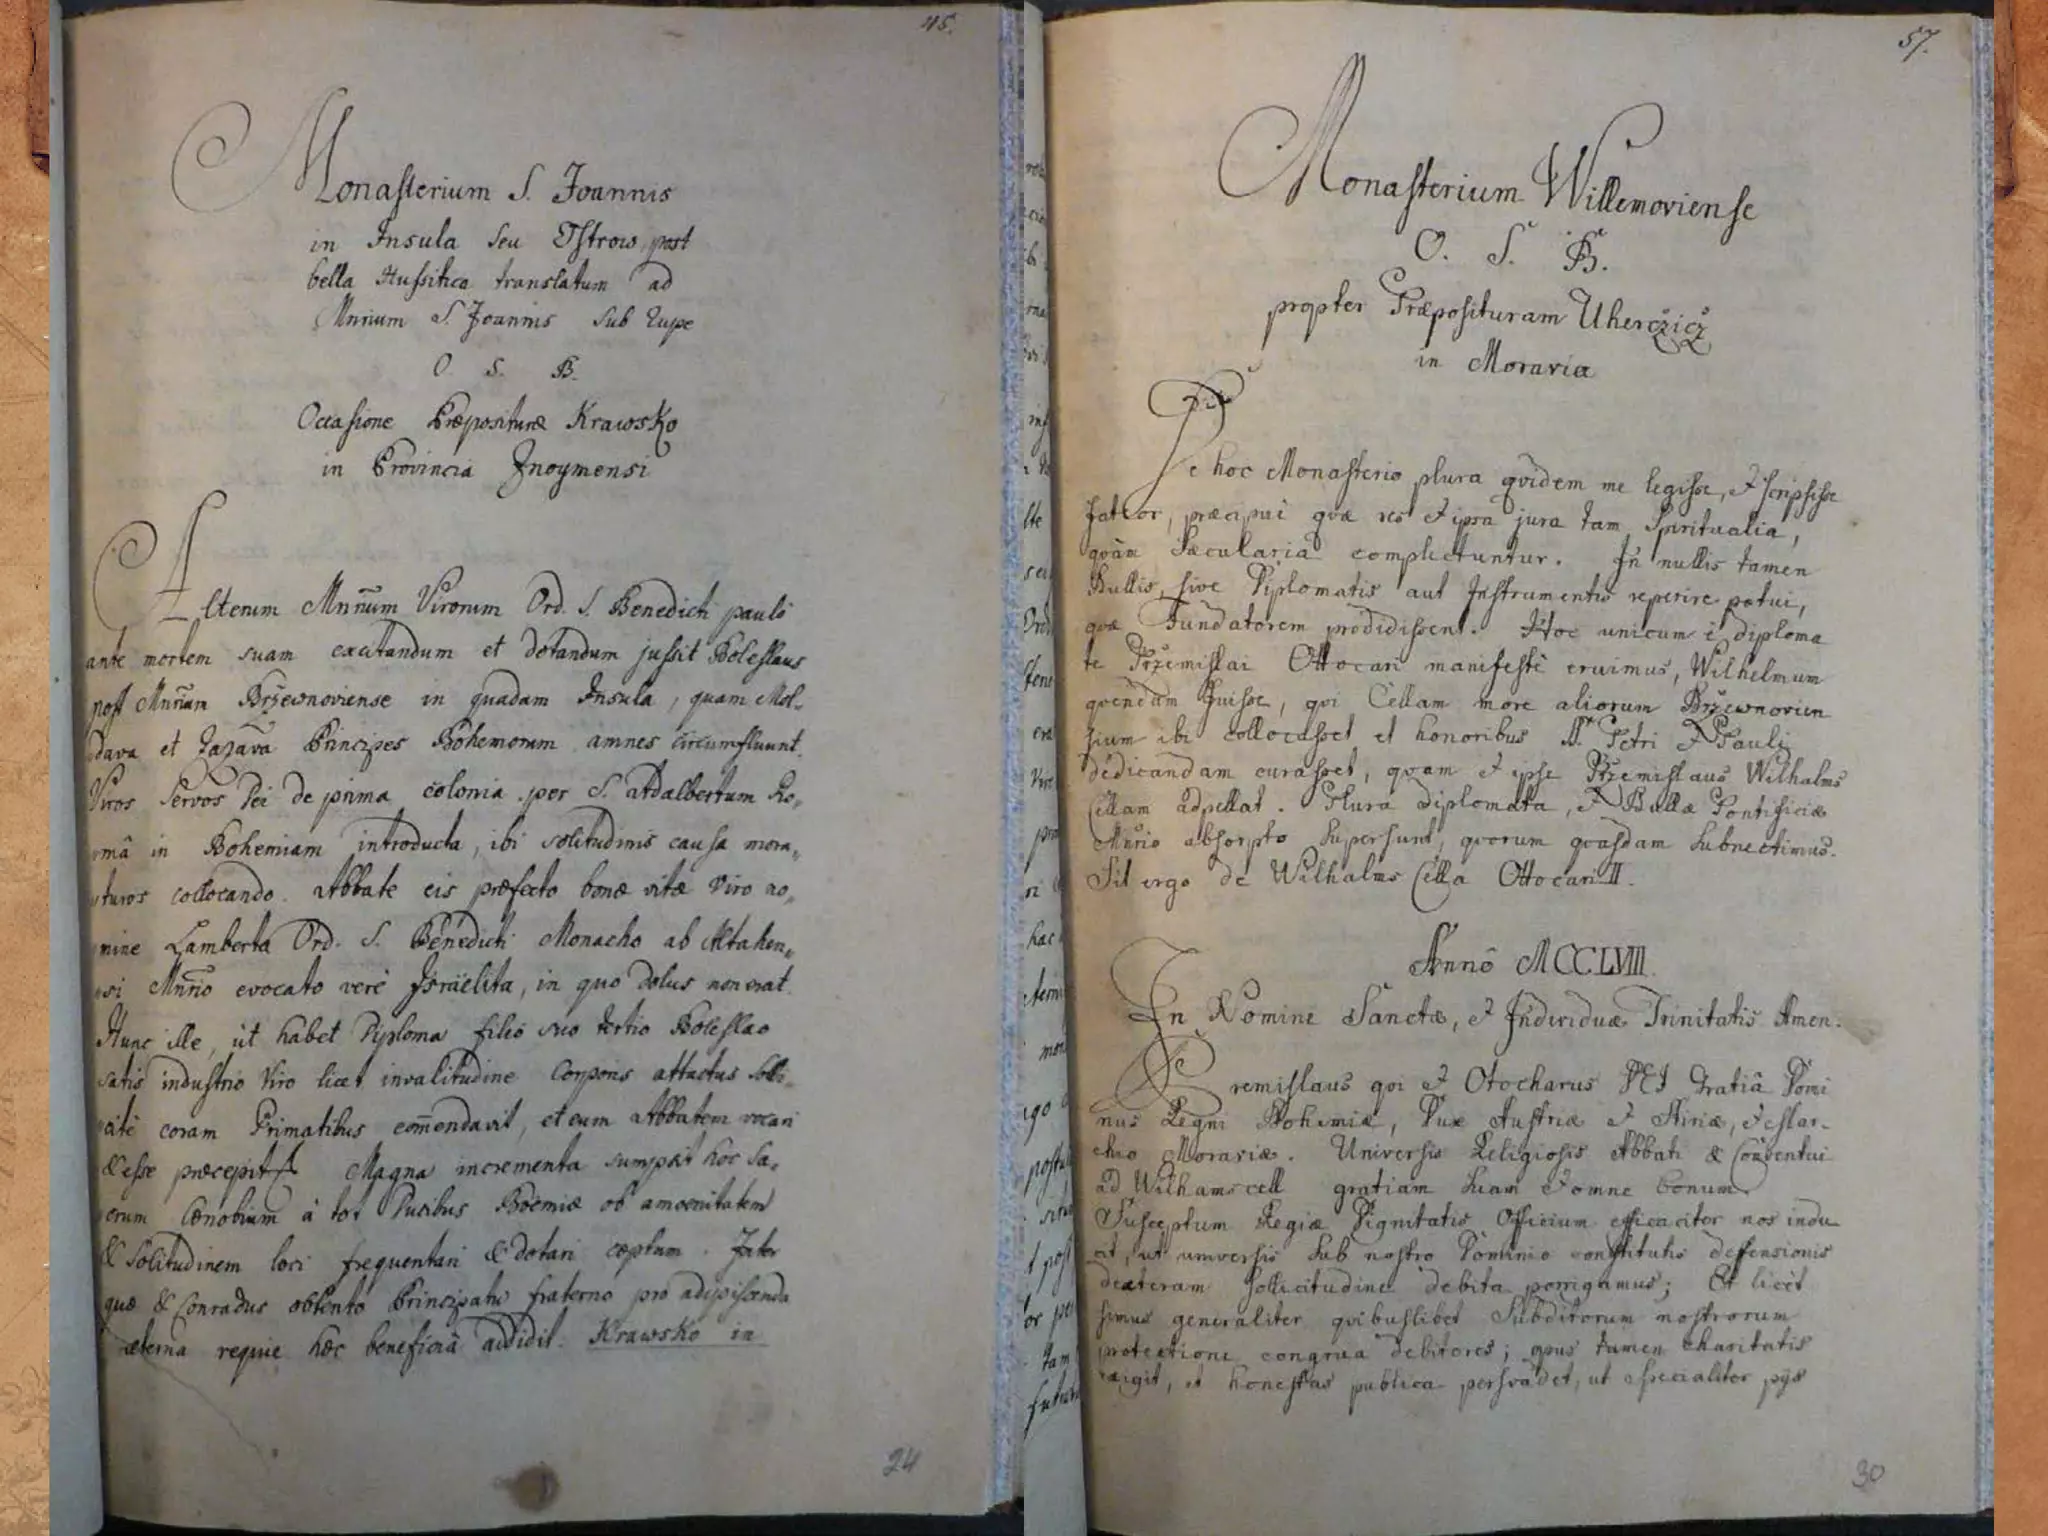 45.
Monasterium S. Joannis
in Insula seu Ostrow, post
bella Hussitica translatum ad
Mnrium S. Joannis sub rupe
O. S. B.
Occasione Præposituræ Krawsko
in Provincia Znoymensi
Alterum Mnrium Virorum Ord. S. Benedicti paulò
ante mortem suam excitandum et dotandum jussit Boleslaus
post Mnrium Brzewnoviense in quadam Insula, quam Mol-
dava et Zazava Principes Bohemorum amnes circumfluunt.
Viros Servos Dei de prima colonia per S. Adalbertum Ro„
mâ in Bohemiam introducta, ibi solitudinis causa mora„
turos collocando. Abbate eis præfecto bonæ vitæ viro no„
mine Lamberto Ord. S. Benedicti Monacho ab Altahen„
si Mnrio evocato verè Israëlita, in quo dolus non erat.
Hunc ille, ut habet Diploma filio suo tertio Boleslao
satis industrio viro licet invalitudine Corporis attactus solli-
citè coram Primatibus comendavit, et eum Abbatem vocari
& esse præcepit. Magna incrementa sumpsit hoc Sa„
crum Cœnobium à tot Ducibus Boemiæ ob amœnitatem
& solitudinem loci frequentari & dotari cœptum. Inter
quæ & Conradus obtento Principatu fraterno pro adipiscenda
æterna requie hæc beneficia addidit. Krawsko in
24
57.
Monasterium Willemoviense
O. S. B.
propter Præposituram Uherczicz
in Moravia
De hoc Monasterio plura qvidem me legisse, & scripsisse
fateor, præcipuè qvæ res & ipsa jura tam Spiritualia,
qvàm Sæcularia complectuntur. In nullis tamen
Bullis, sive Diplomatis aut Instrumentis reperire potui,
qvæ Fundatorem prodidissent. Hoc unicum è diploma
te Przemislai Ottocari manifestè eruimus, Wilhelmum
qvendam fuisse, qvi Cellam more aliorum Brzewnovien
sium ibi collocasset et honoribus SS. Petri & Pauli
dedicandam curasset, qvam & ipse Przemislaus Wilhalms
Cellam adpellat. Plura diplomata, & Bullæ Pontificiæ
Mnrio absorpto supersunt, qvorum qvasdam subnectimus.
Sit ergo de Wilhalms Cella Ottocari II.
Annô MCCLVIII.
In Nomine Sanctæ, & Individuæ Trinitatis Amen.
Premislaus qvi & Otocharus DEI Gratiâ Domi
nus Regni Bohemiæ, Dux Austriæ & Stiriæ, & Mar-
chio Moraviæ. Universis Religiosis Abbati & Conventui
ad Wilhamscell gratiam suam & omne bonum.
Susceptum Regiæ Dignitatis Officium efficaciter nos indu
cit, ut universis sub nostro Dominio constitutis deffensionis
dexteram sollicitudine debita porrigamus; Et licèt
simus generaliter qvibuslibet Subditorum nostrorum
protectione congrua debitores; opus tamen charitatis
exigit, et honestas publica persvadet, ut specialiter pijs
30